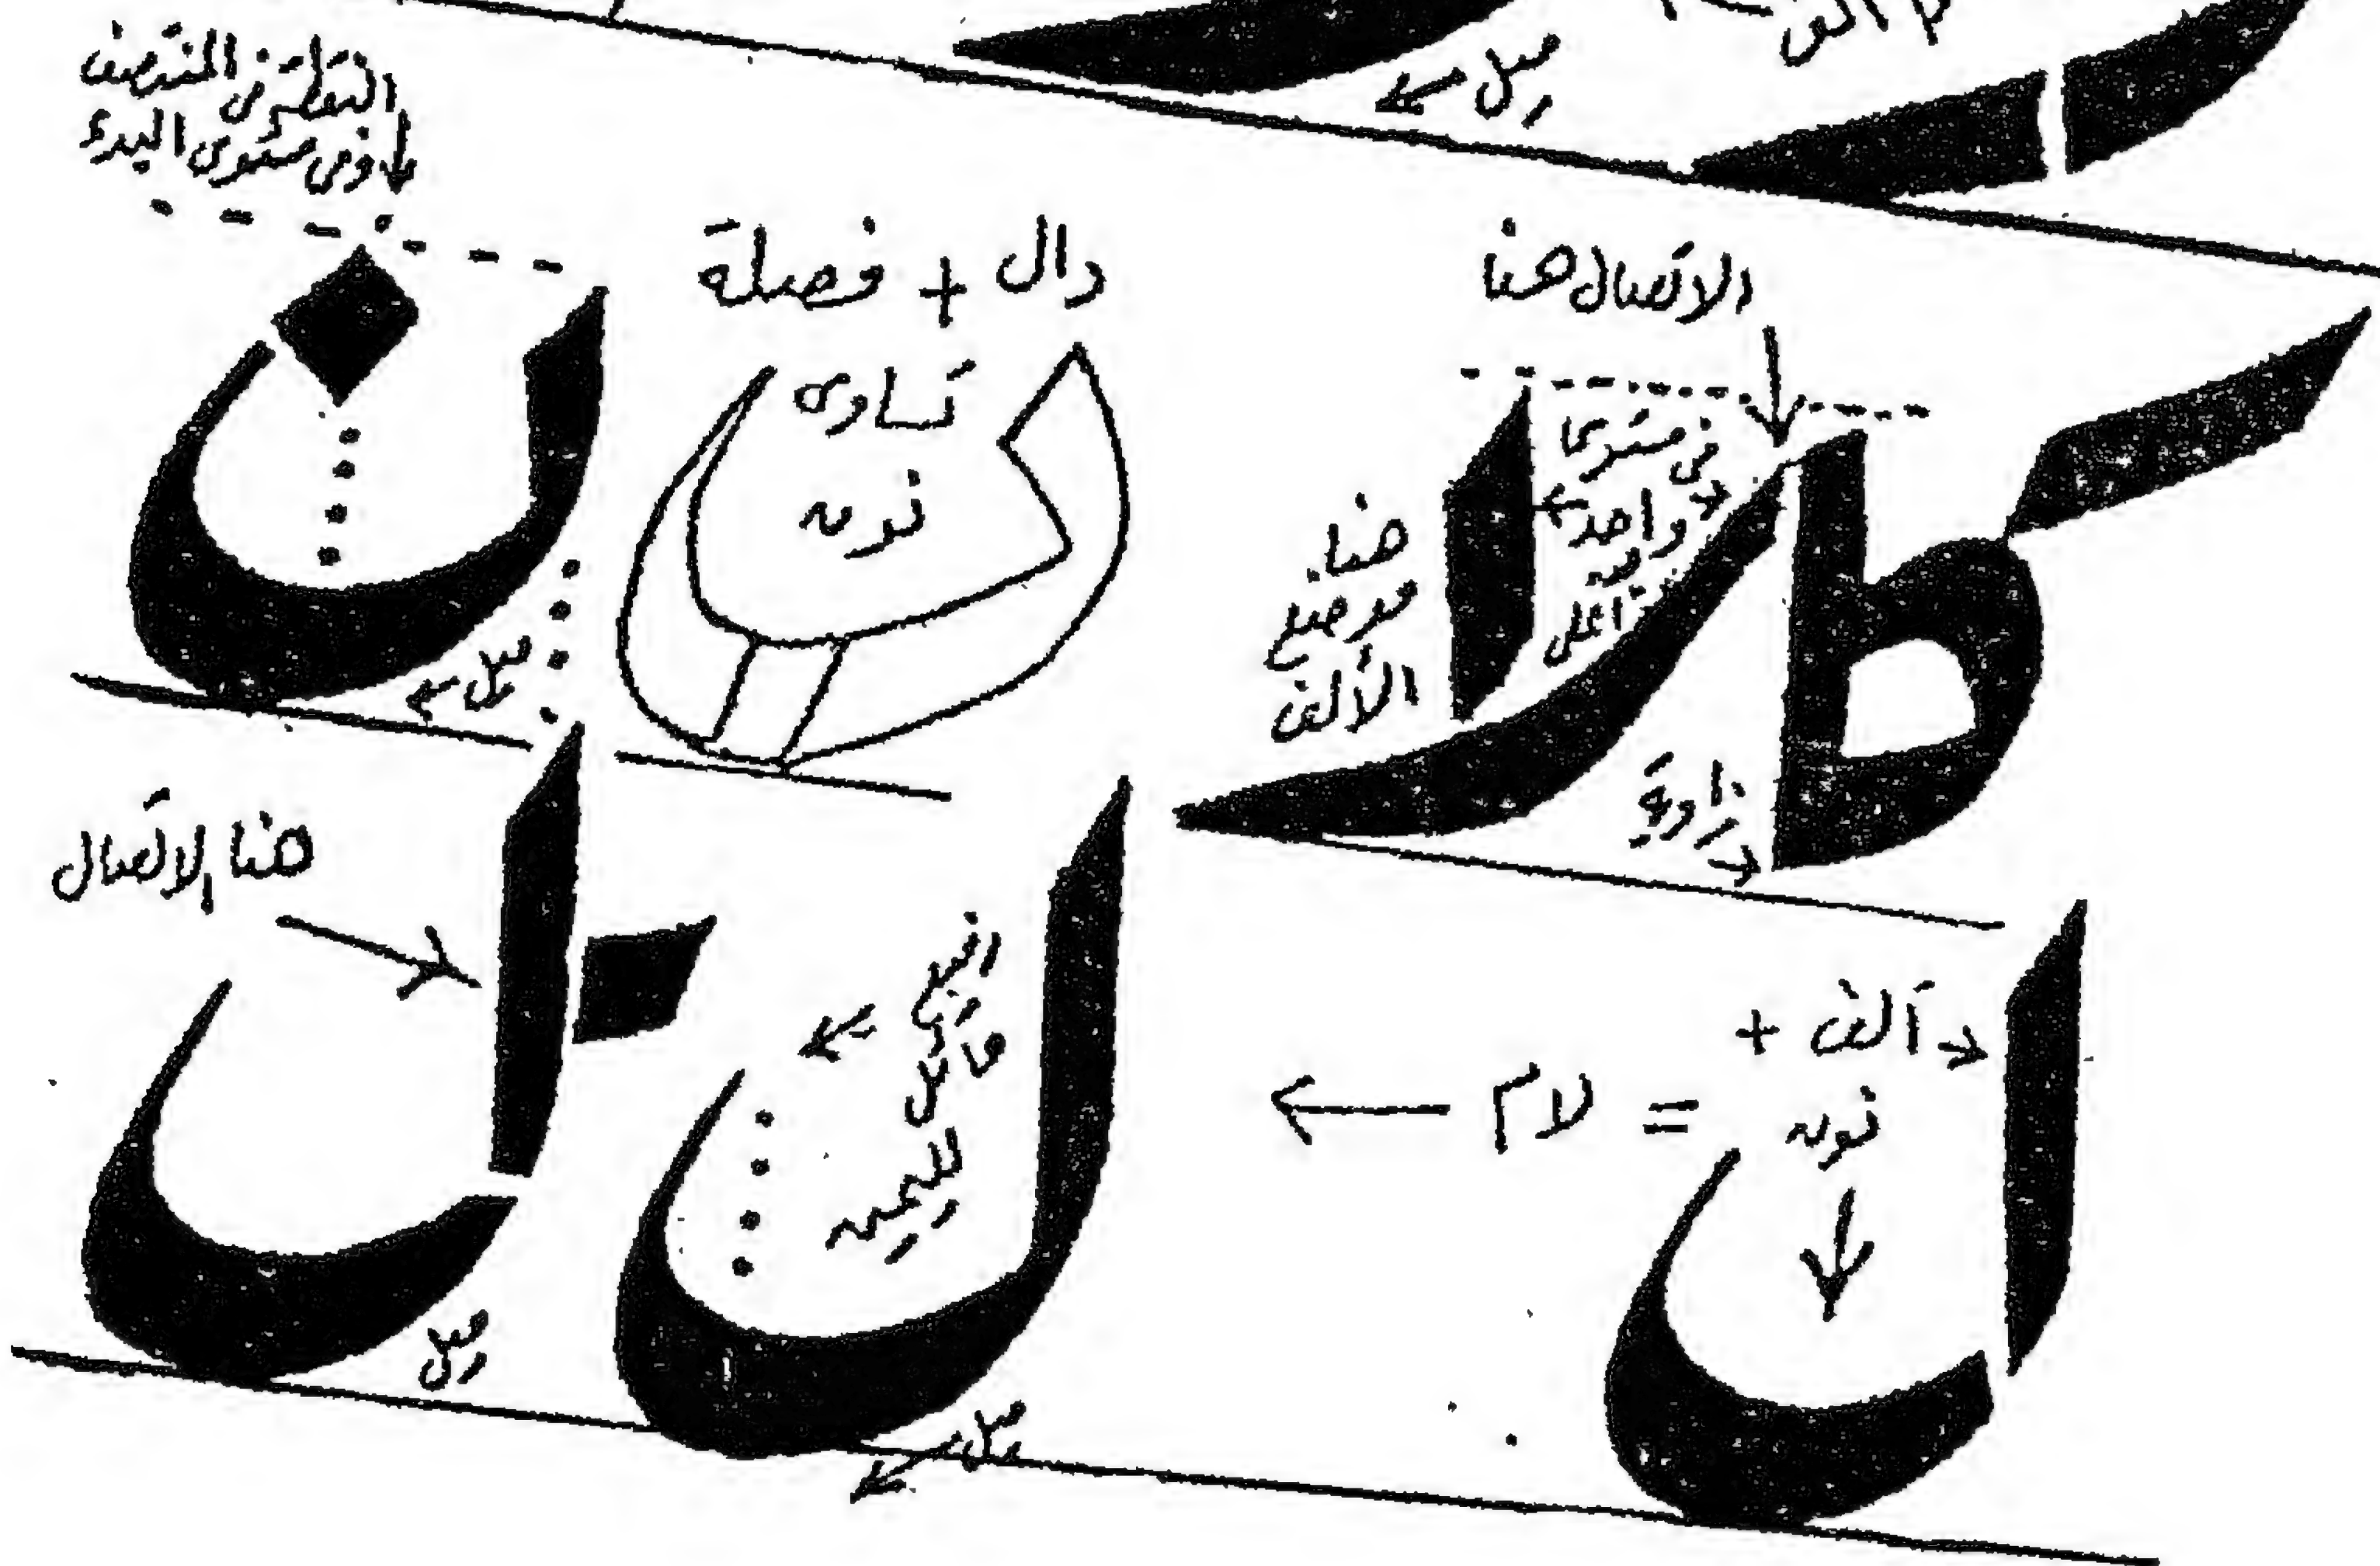 ميل
النقطة في المنتصف
وفي مستوى البدء
ن
دال + فصلة
تساوى
نون
ميل
الاتصال هنا
في مستوى
واحد
من
أعلى
هنا
موضع
الألف
زاوية
هنا الاتصال
ميل
ل
مائل
لليمين
ميل
ألف +
نون
= لام